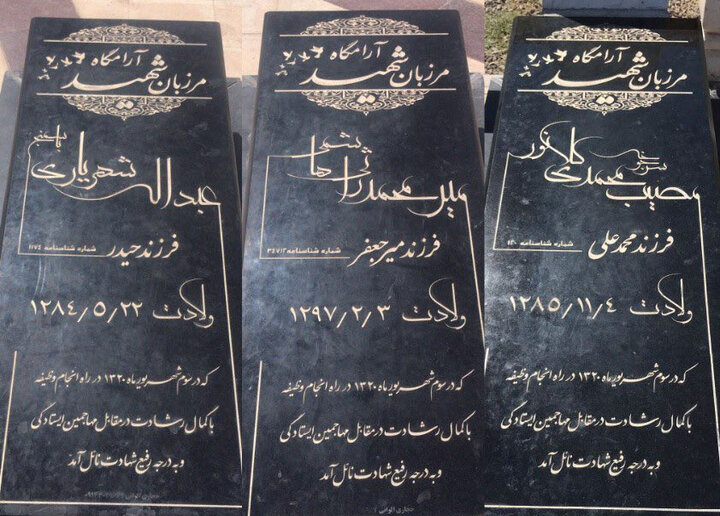 آرامگاه
مرزبان شهید
مصیب محمدی
فرزند محمدعلی شماره شناسنامه
ولادت ۱۲۸۵/۱۱/۴
که در سوم شهریور ماه ۱۳۲۰ در راه انجام وظیفه
با کمال رشادت در مقابل مهاجمین ایستادگی
و به درجه رفیع شهادت نائل آمد
آرامگاه
مرزبان شهید
میر محمد راثی هاشمی
فرزند میرجعفر شماره شناسنامه ۳۴۷۱۲
ولادت ۱۲۹۷/۲/۳
که در سوم شهریور ماه ۱۳۲۰ در راه انجام وظیفه
با کمال رشادت در مقابل مهاجمین ایستادگی
و به درجه رفیع شهادت نائل آمد
آرامگاه
مرزبان شهید
عبداله شهریاری
فرزند حیدر شماره شناسنامه
ولادت ۱۲۸۴/۵/۲۲
که در سوم شهریور ماه ۱۳۲۰ در راه انجام وظیفه
با کمال رشادت در مقابل مهاجمین ایستادگی
و به درجه رفیع شهادت نائل آمد